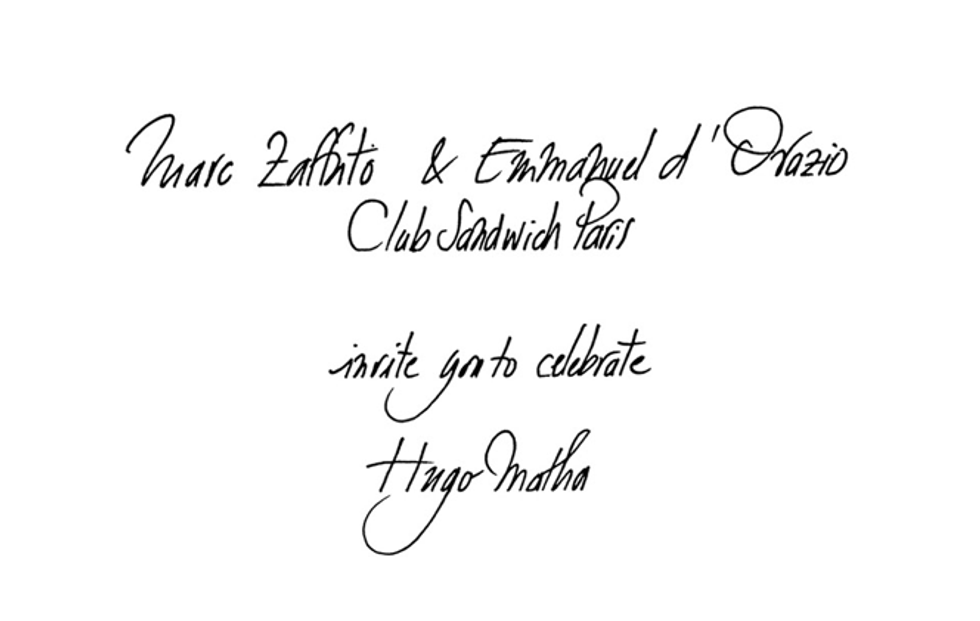 Marc Zaffuto & Emmanuel d'Orazio
Club Sandwich Paris
invite you to celebrate
Hugo Matha